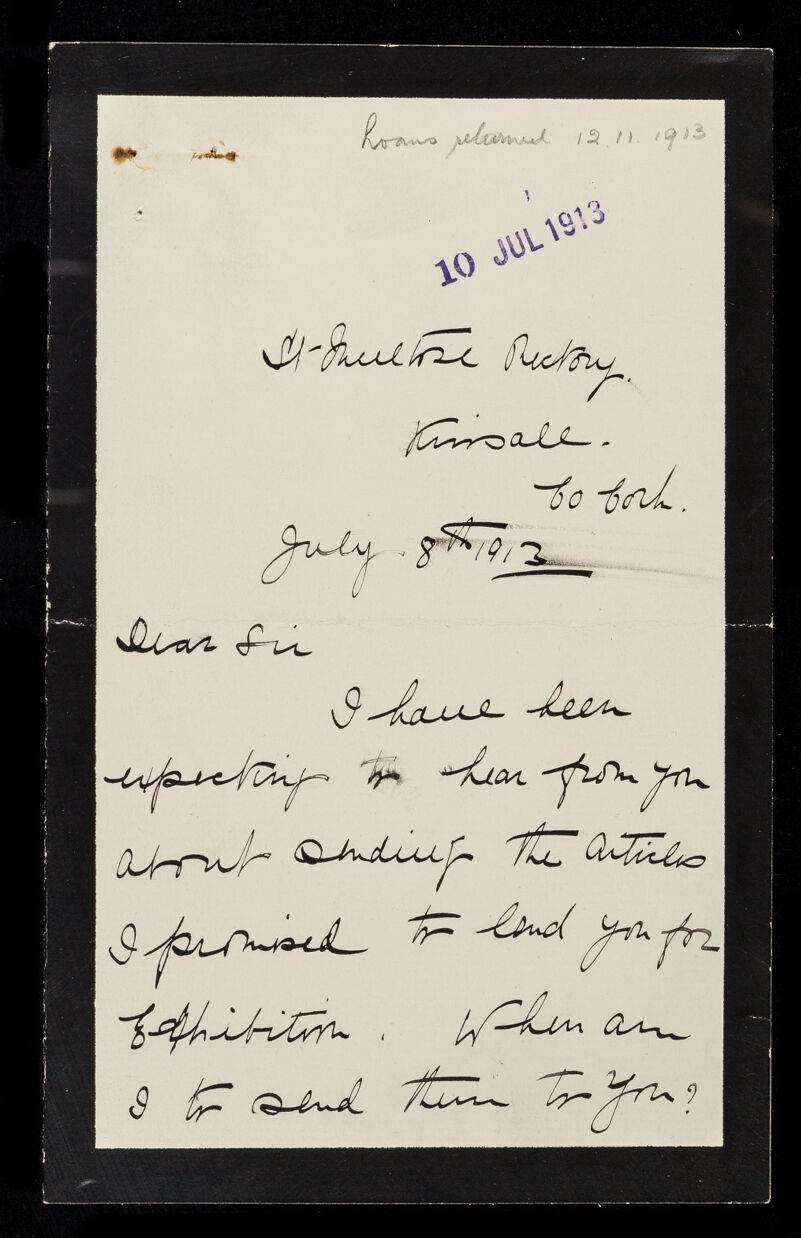 Loans returned 12.11.1913
10 JUL 1913
St Multose Rectory.
Kinsale.
Co Cork.
July 8th 1913
Dear Sir
I have been
expecting to hear from you
about sending the articles
I promised to lend you for
Exhibition. When am
I to send them to you?